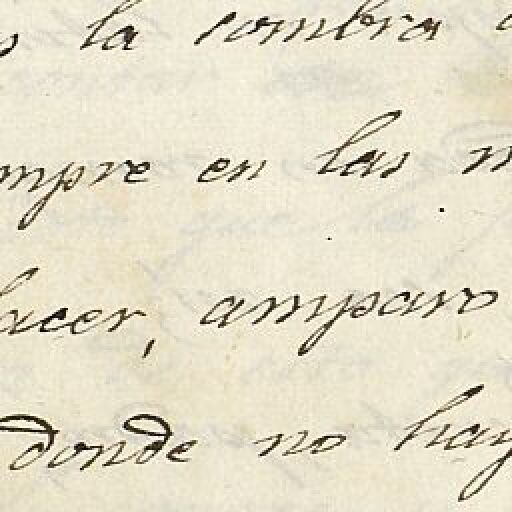 la sombra
mpre en las
acer, amparo
donde no hay